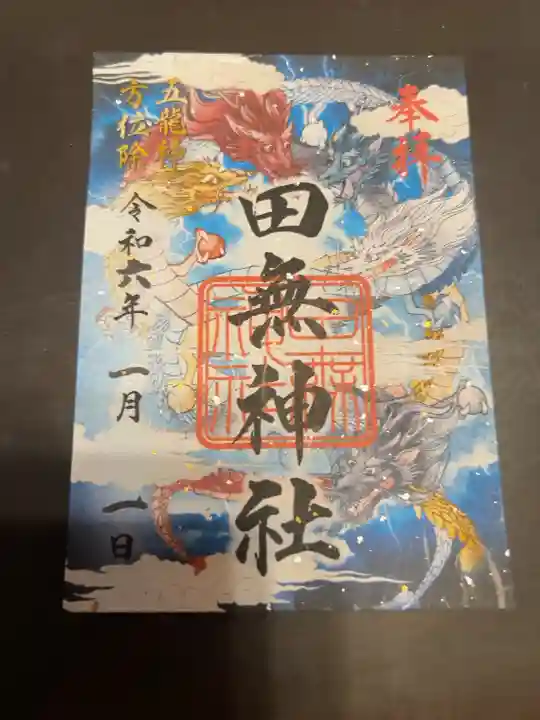 奉拝
田無神社
五龍神
方位除
令和六年 一月 一日